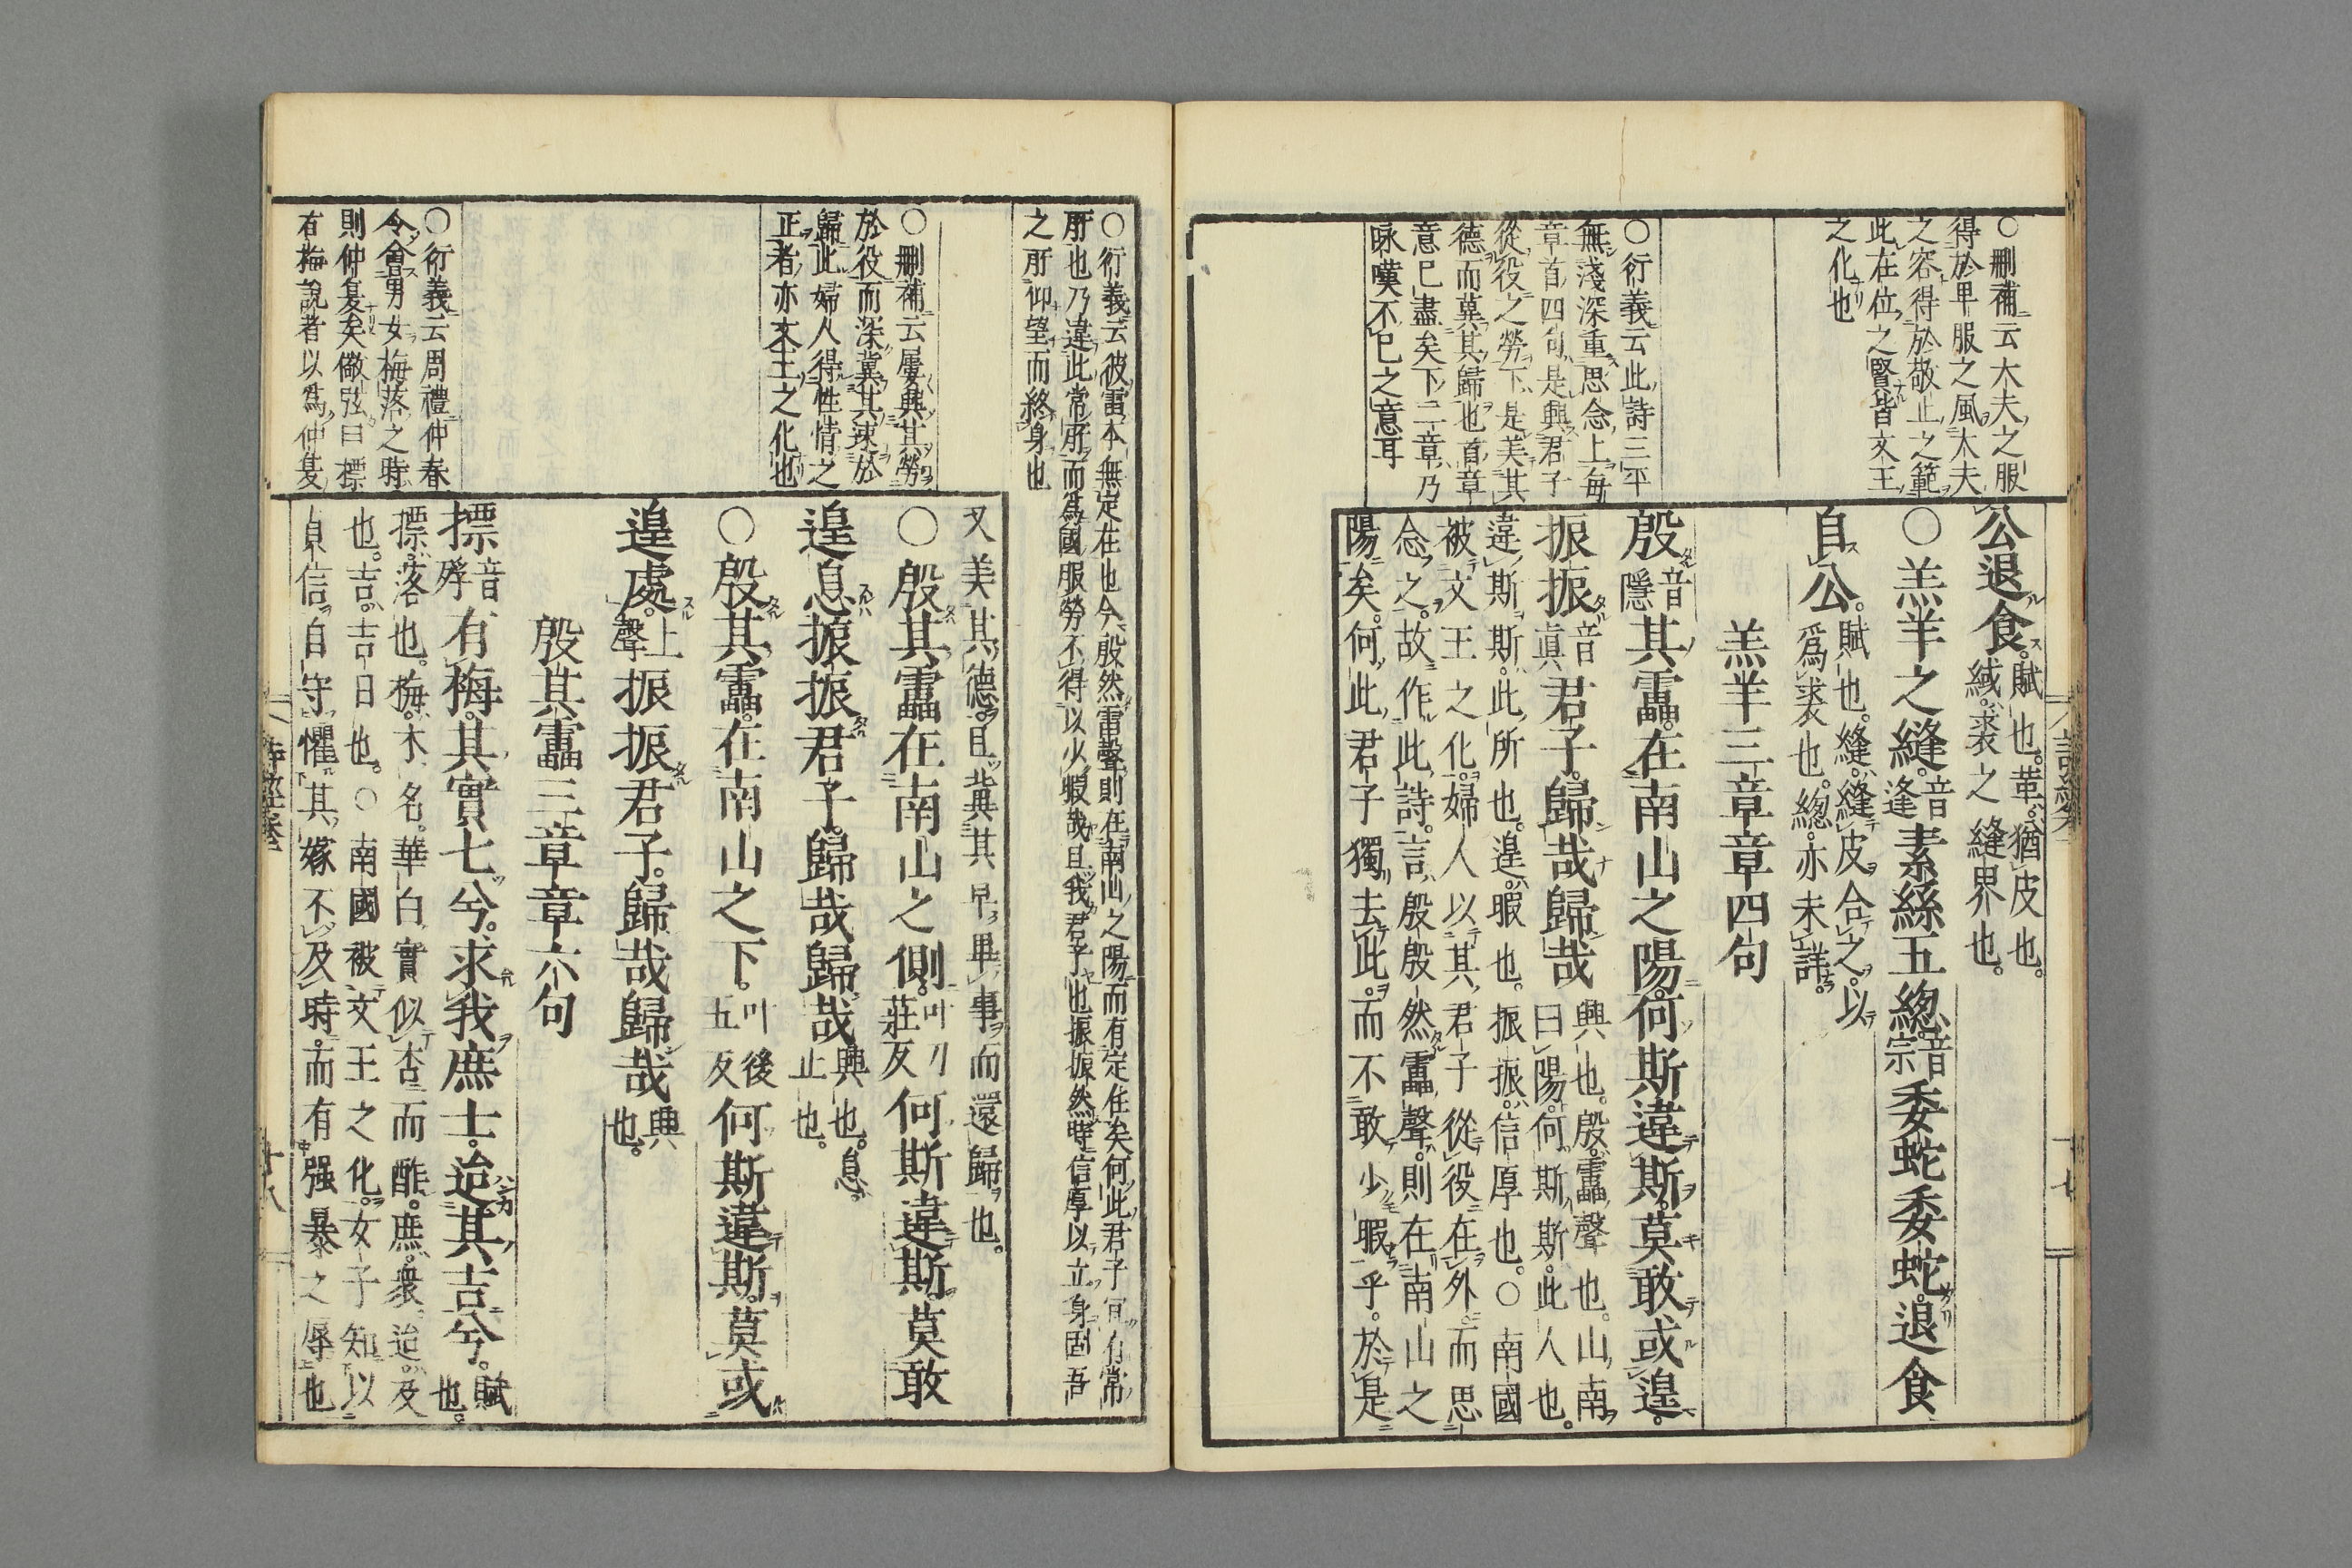 ○刪補云大夫之服
得於卑服之風大夫
之容得於敬止之範
此在位之賢皆文王
之化也
○衍義云此詩三平
無淺深重思念上每
章首四句是興君子
從役之勞下是美其
德而冀其歸也首章
意已盡矣下二章乃
咏嘆不已之意耳
公退食賦也革猶皮也
緎裘之縫界也
○羔羊之縫音逢素絲五總音宗委蛇委蛇退食
自公賦也縫縫皮合之以
爲裘也總亦未詳
羔羊三章章四句
殷音隱其靁在南山之陽何斯違斯莫敢或遑
振振音眞君子歸哉歸哉興也殷靁聲也山南
曰陽何斯斯此人也
違斯斯此所也遑暇也振振信厚也○南國
被文王之化婦人以其君子從役在外而思
念之故作此詩言殷殷然靁聲則在南山之
陽矣何此君子獨去此而不敢少暇乎於是
○衍義云彼雷本無定在也今殷然雷聲則在南山之陽而有定在矣何此君子宜有常
所也乃違此常所而爲國服勞不得以少暇哉且我君子也振振然時信厚以立身固吾
之所仰望而終身也
○刪補云屢興其勞
於役而深冀其速於
歸此婦人得性情之
正者亦文王之化也
○衍義云周禮仲春
令會男女梅落之時
則仲夏矣儆弦曰摽
有梅說者以爲仲夏
又美其德且冀其早畢事而還歸也
○殷其靁在南山之側叶莊反何斯違斯莫敢
遑息振振君子歸哉歸哉興也息
止也
○殷其靁在南山之下叶後五反何斯違斯莫或
遑處上聲振振君子歸哉歸哉興也
殷其靁三章章六句
摽音殍有梅其實七兮求我庶士迨其吉兮賦也
摽落也梅木名華白實似杏而酢庶衆迨及
也吉吉日也○南國被文王之化女子知以
貞信自守懼其嫁不及時而有强暴之辱也